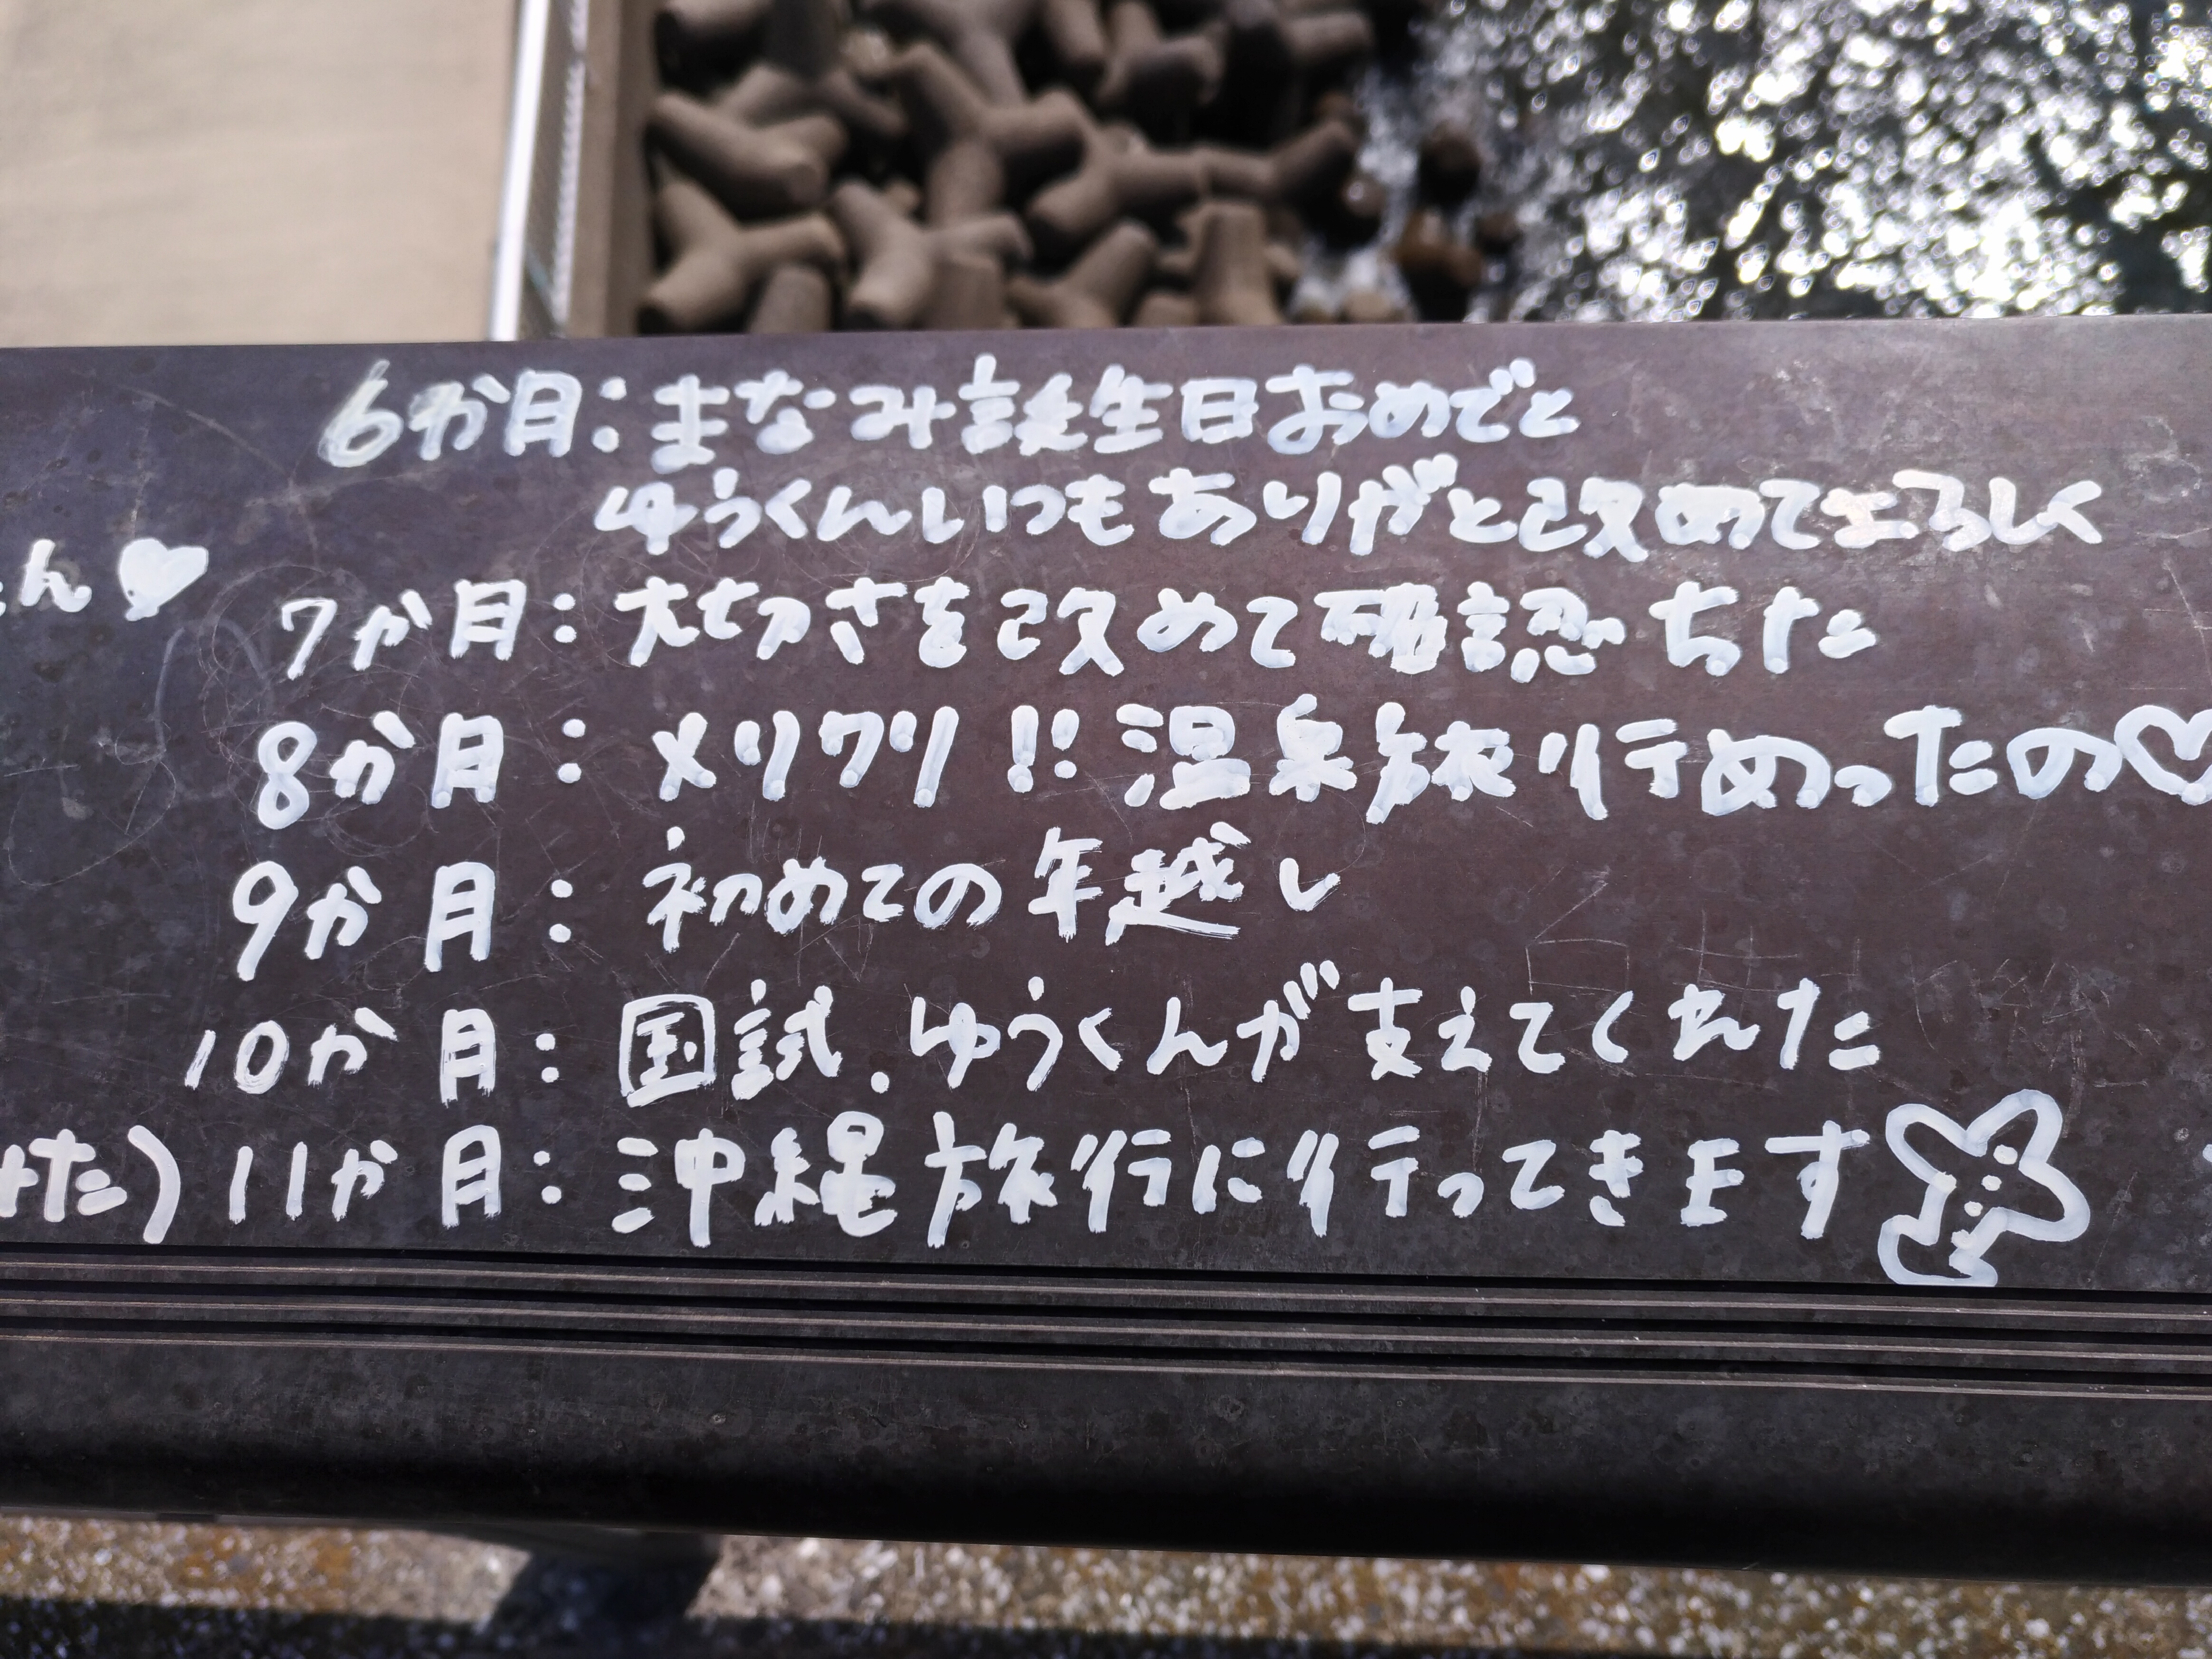 6か月:まなみ誕生日おめでと
ゆうくんいつもありがと改めてよろしく
ん♥
7か月:大切さを改めて確認ちた
8か月:メリクリ!!温泉旅行めったの♡
9か月:初めての年越し
10か月:国試.ゆうくんが支えてくれた
けた)11か月:沖縄旅行に行ってきます